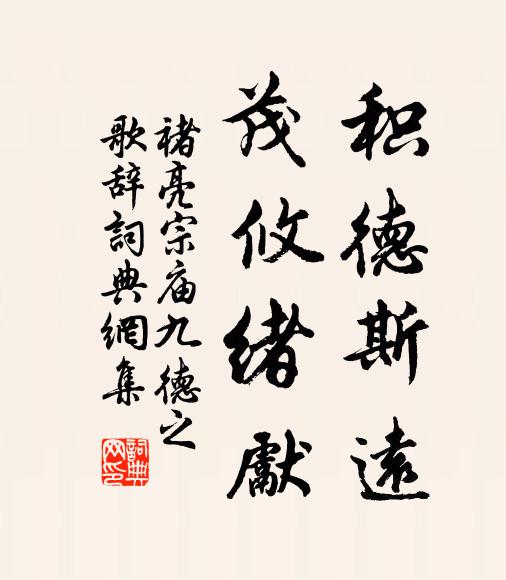 积德斯遠
茂攸緖獻
褚亮宗庙九德之
歌辞詞典網集
詞典
网印